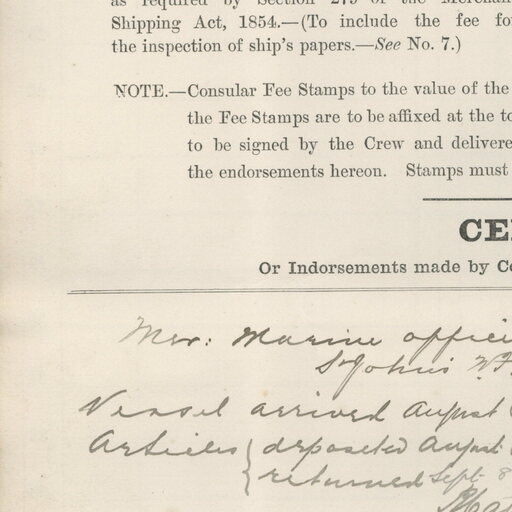 as required by Section 279 of the Merchan
Shipping Act, 1854.—(To include the fee fo
the inspection of ship's papers.—See No. 7.)
NOTE.—Consular Fee Stamps to the value of the
the Fee Stamps are to be affixed at the to
to be signed by the Crew and delivere
the endorsements hereon. Stamps must
CE
Or Indorsements made by Co
Mer: Marine offic
St Johns N.F.
Vessel arrived August
Articles { deposited August
{ returned Sept. 8